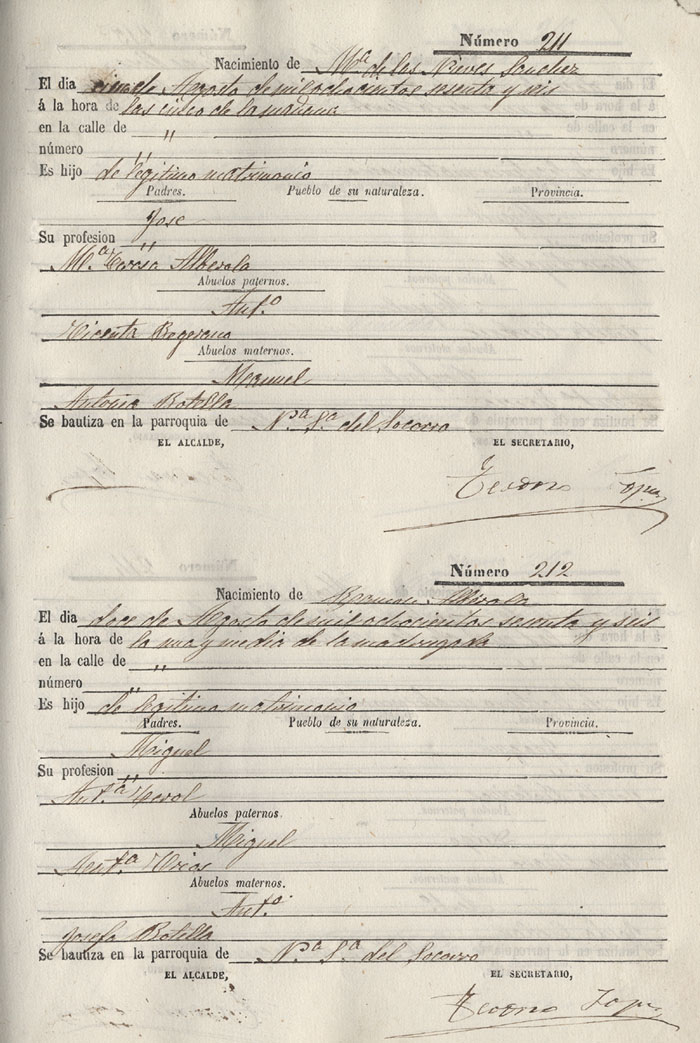 Número 211
Nacimiento de Mª de las Nieves Sanchez
El dia once de Agosto de mil ochocientos sesenta y seis
á la hora de las cinco de la mañana
en la calle de "
número "
Es hijo de legitimo matrimonio
Padres. Pueblo de su naturaleza. Provincia.
Jose
Su profesion "
Mª Teresa Alberola
Abuelos paternos.
Antº
Vicenta
Abuelos maternos.
Manuel
Antonia Botella
Se bautiza en la parroquia de Nª Sª del Socorro
EL ALCALDE, EL SECRETARIO,
Teodoro Lopez
Número 212
Nacimiento de Francisco Alberola
El dia doce de Agosto de mil ochocientos sesenta y seis
á la hora de la una y media de la madrugada
en la calle de "
número "
Es hijo de legitimo matrimonio
Padres. Pueblo de su naturaleza. Provincia.
Miguel
Su profesion "
Antª
Abuelos paternos.
Miguel
Antª
Abuelos maternos.
Antº
Josefa Botella
Se bautiza en la parroquia de Nª Sª del Socorro
EL ALCALDE, EL SECRETARIO,
Teodoro Lopez